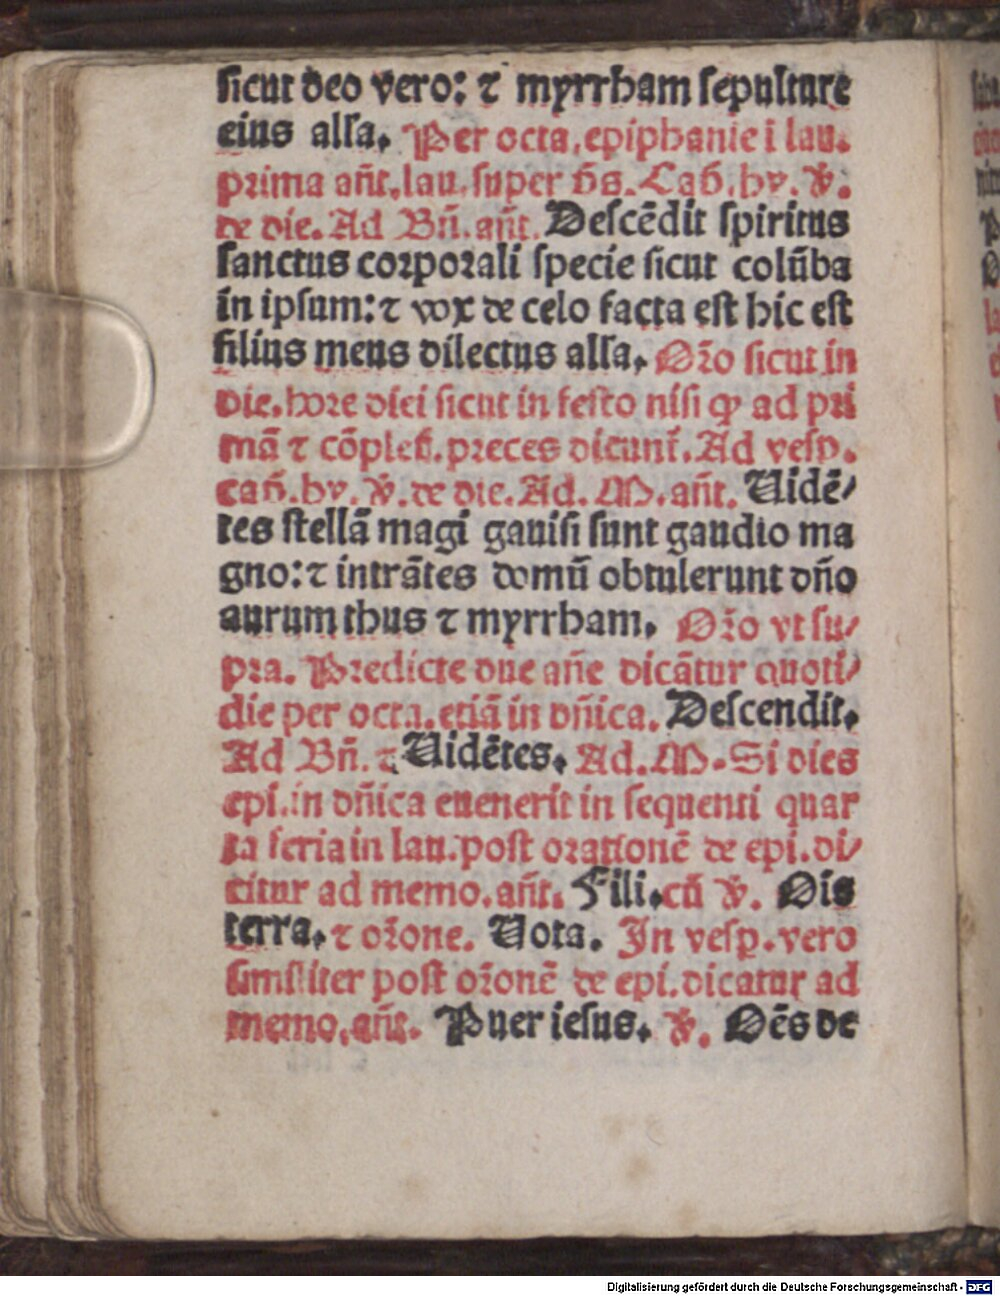 sicut deo vero: ⁊ myrrham sepulture
eius alla. Per octa. epiphanie ī lau.
prima añt. lau. super p̄s. Cap̄. hy. ℣.
de die. Ad Bn̄. añt. Descēdit spiritus
sanctus corporali specie sicut colūba
in ipsum: ⁊ vox de celo facta est hic est
filius meus dilectus alla. Oro̅ sicut in
die. hore dici sicut in festo nisi ꝙ ad pri
mā ⁊ cōplet̄. preces dicunt̄. Ad vesp̄.
cap̄. hy. ℣. de die. Ad. M. añt. Uidē/
tes stellā magi gauisi sunt gaudio ma
gno: ⁊ intrātes domū obtulerunt dn̄o
aurum thus ⁊ myrrham. Oro̅ vt su/
pra. Predicte due an̄e dicātur quoti/
die per octa. etiā in dn̄ica. Descendit.
Ad Bn̄. ⁊ Uidētes. Ad. M. Si dies
epi. in dn̄ica euenerit in sequenti quar
ta feria in lau. post orationē de epi. di/
citur ad memo. añt. Fili. cū ℣. Ois
terra. ⁊ oro̅ne. Uota. In vesp̄. vero
similiter post oro̅nē de epi. dicatur ad
memo. añt. Puer iesus. ℣. Oēs de
Digitalisierung gefördert durch die Deutsche Forschungsgemeinschaft - DFG